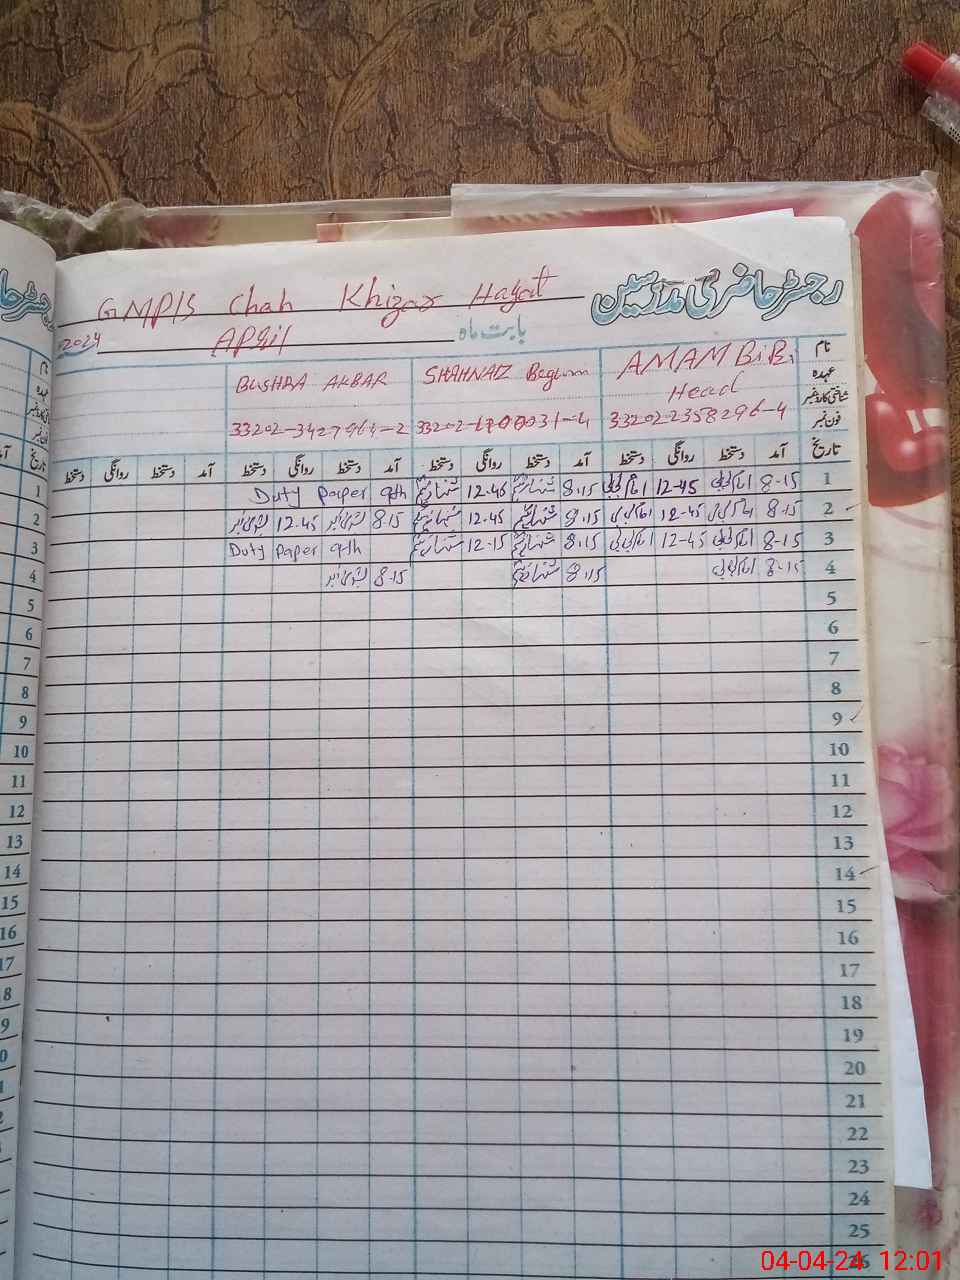 رجسٹر حاضری مدرسین
GMPIS Chah Khizar Hayat
بابت ماہ April 2024
نام AMAM BiBi SHAHNAZ Begum BUSHRA AKBAR
عہدہ Head
شناختی کارڈ نمبر
فون نمبر 33202-2358296-4 33202-3427964-2
تاریخ آمد دستخط روانگی دستخط آمد دستخط روانگی دستخط آمد دستخط روانگی دستخط آمد دستخط روانگی دستخط
1 8-15 امام بی بی 12-45 امام بی بی 8.15 شہناز بیگم 12-45 شہناز بیگم Duty paper 9th
2 8-15 امام بی بی 12-45 امام بی بی 8.15 شہناز بیگم 12-45 شہناز بیگم 8-15 بشریٰ اکبر 12-45 بشریٰ اکبر
3 8-15 امام بی بی 12-45 امام بی بی 8.15 شہناز بیگم 12-15 شہناز بیگم Duty paper 9th
4 8-15 امام بی بی 8.15 شہناز بیگم 8-15 بشریٰ اکبر
5
6
7
8
9
10
11
12
13
14
15
16
17
18
19
20
21
22
23
24
25
26
04-04-24 12:01